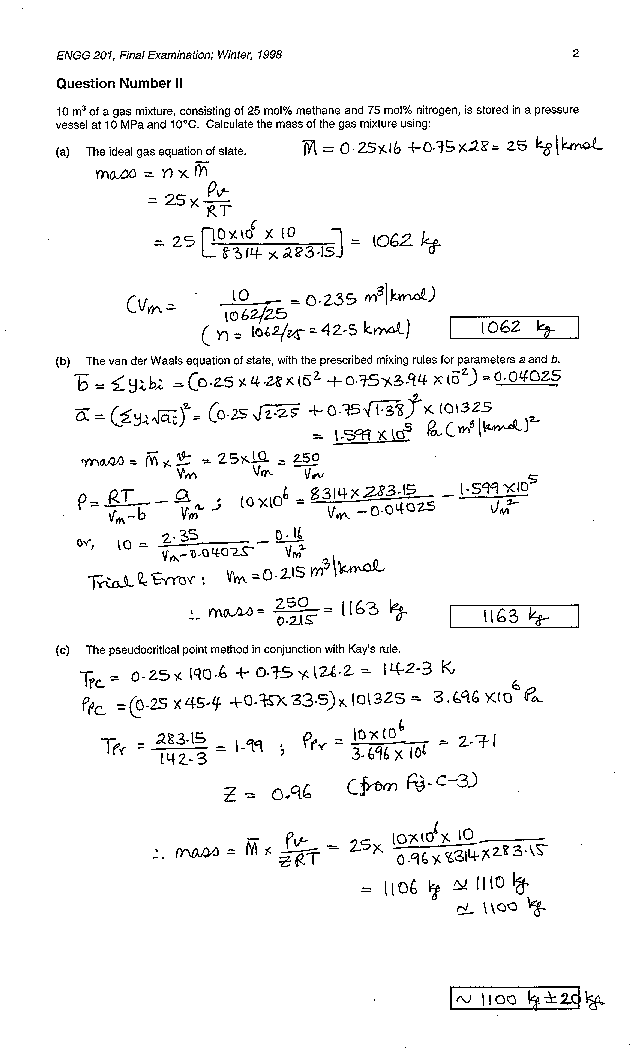 ENGG 201, Final Examination; Winter, 1998
2
Question Number II
10 m³ of a gas mixture, consisting of 25 mol% methane and 75 mol% nitrogen, is stored in a pressure
vessel at 10 MPa and 10°C. Calculate the mass of the gas mixture using:
(a) The ideal gas equation of state. M̅ = 0.25x16 + 0.75x28 = 25 kg/kmol
mass = n x m̅
= 25 x PV/RT
= 25 [10x10⁶ x 10 / 8314 x 283.15] = 1062 kg
(Vm = 10 / 1062/25 = 0.235 m³/kmol)
(n = 1062/25 = 42.5 kmol)
1062 kg
(b) The van der Waals equation of state, with the prescribed mixing rules for parameters a and b.
b̅ = Σyibi = (0.25 x 4.28 x 10⁻² + 0.75x3.94 x 10⁻²) = 0.04025
a̅ = (Σyi√ai)² = (0.25 √2.25 + 0.75√1.38)² x 101325
= 1.599 x 10⁵ Pa (m³/kmol)²
mass = M̅ x V/Vm = 25x10/Vm = 250/Vm
P = RT/Vm-b - a/Vm² ; 10x10⁶ = 8314 x 283.15/Vm - 0.04025 - 1.599 x10⁵/Vm²
or, 10 = 2.35/Vm-0.04025 - 0.16/Vm²
Trial & Error : Vm = 0.215 m³/kmol
∴ mass = 250/0.215 = 1163 kg
1163 kg
(c) The pseudocritical point method in conjunction with Kay's rule.
Tpc = 0.25 x 190.6 + 0.75 x 126.2 = 142.3 K
Ppc = (0.25 x 45.4 + 0.75x 33.5) x 101325 = 3.696 x10⁶ Pa
Tpr = 283.15/142.3 = 1.99 ; Ppr = 10x10⁶/3.696 x 10⁶ = 2.71
Z = 0.96 (from Fig. C-3)
∴ mass = M̅ x PV/ZRT = 25x 10x10⁶ x 10/0.96 x 8314 x 283.15
= 1106 kg ≃ 1110 kg
≃ 1100 kg
~ 1100 kg ± 20 kg